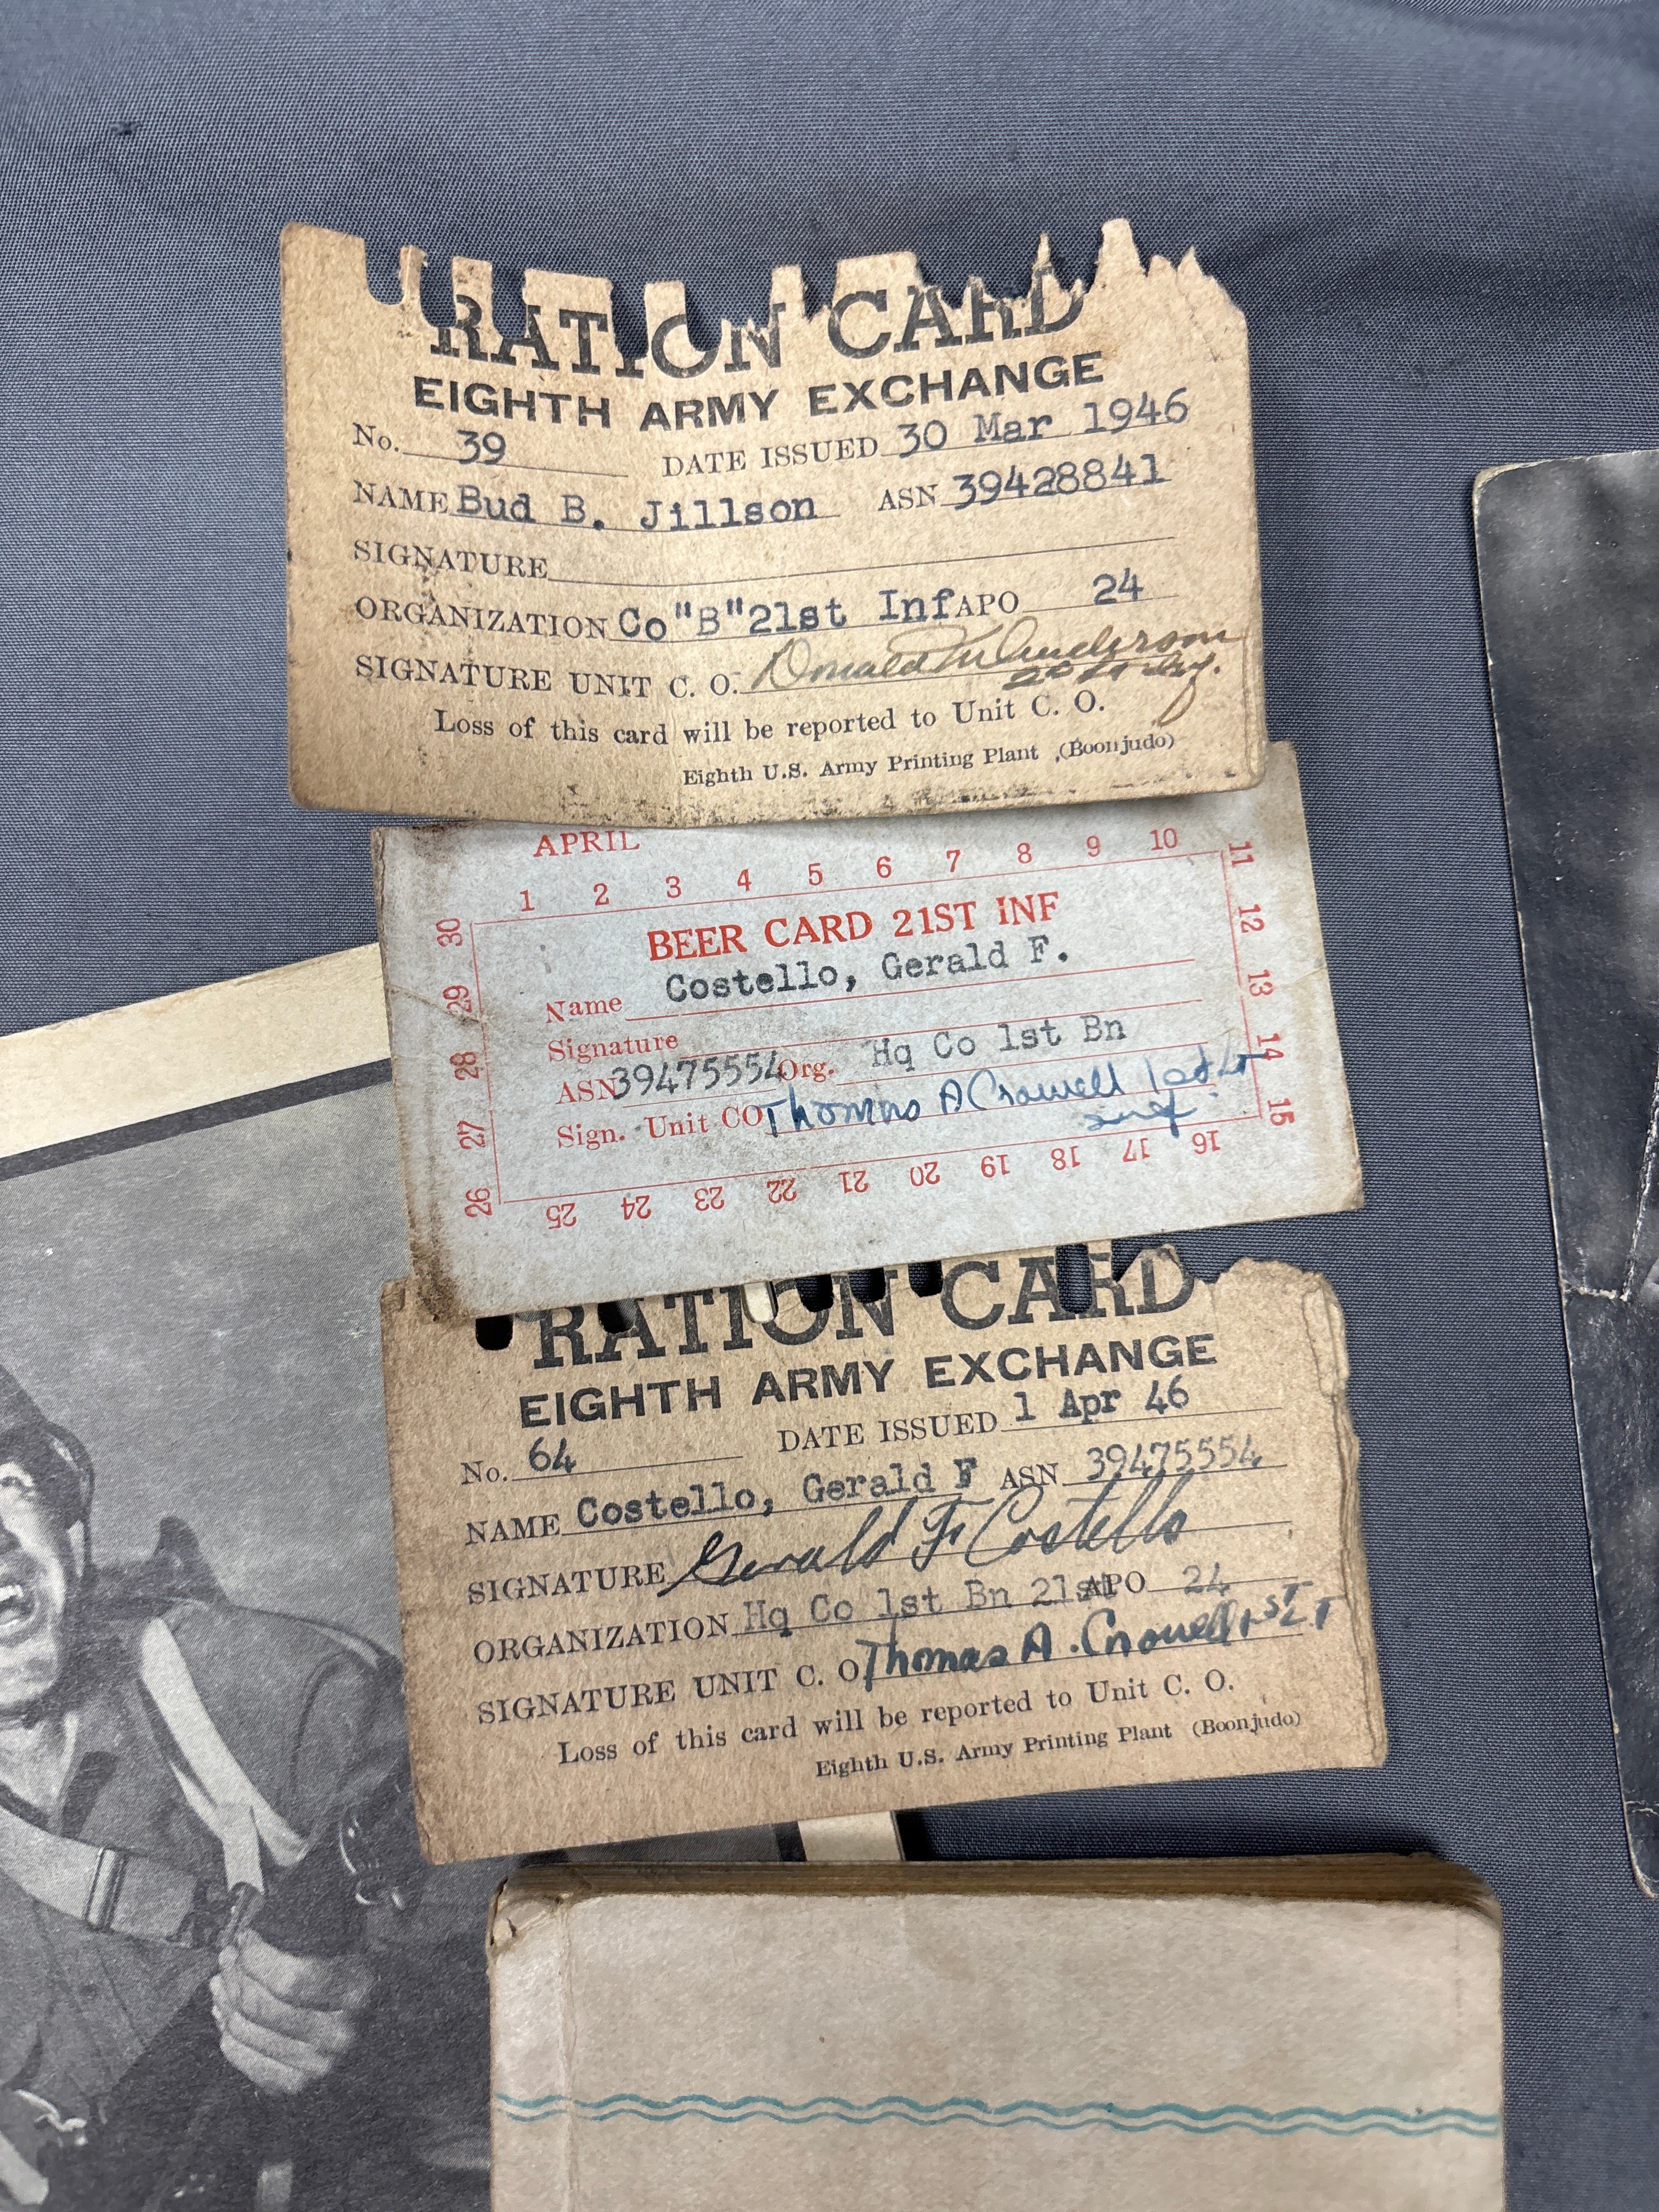 RATION CARD
EIGHTH ARMY EXCHANGE
No. 39 DATE ISSUED 30 Mar 1946
NAME Bud B. Jillson ASN 39428841
SIGNATURE
ORGANIZATION Co "B" 21st Inf APO 24
SIGNATURE UNIT C. O. Donald M Anderson
2d Lt Inf.
Loss of this card will be reported to Unit C. O.
Eighth U.S. Army Printing Plant (Boonjudo)
APRIL
1 2 3 4 5 6 7 8 9 10
11 12 13 14 15
BEER CARD 21ST INF
Name Costello, Gerald F.
Signature
ASN 39475554 Org. Hq Co 1st Bn
Sign. Unit CO Thomas A Crowell 1st Lt
Inf.
16 17 18 19 20 21 22 23 24 25
26 27 28 29 30
RATION CARD
EIGHTH ARMY EXCHANGE
No. 64 DATE ISSUED 1 Apr 46
NAME Costello, Gerald F ASN 39475554
SIGNATURE Gerald F. Costello
ORGANIZATION Hq Co 1st Bn 21st APO 24
SIGNATURE UNIT C. O. Thomas A. Crowell 1ST LT
Loss of this card will be reported to Unit C. O.
Eighth U.S. Army Printing Plant (Boonjudo)